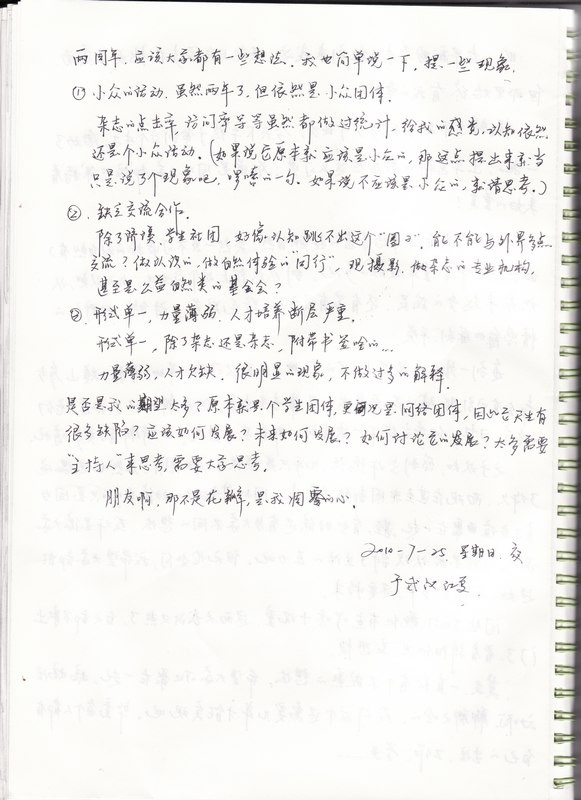 两周年，应该大家都有一些想法。我也简单说一下，提一些现象。
① 小众的活动。虽然两年了，但依然是小众团体。
杂志的点击率、访问率等等虽然都做过统计，给我的感觉，认知依然
还是个小众活动。（如果说它原本就应该是小众的，那这点提出来就当
只是说了个现象吧，啰嗦的一句。如果说不应该是小众的，就请思考。）
②. 缺乏交流合作。
除了环境学生社团，好像认知跳不出这个“圈子”，能不能与外界多点
交流？做认识的，做自然体验的“同行”，观摄影，做杂志的专业机构，
甚至是公益自然类的基金会？
③. 形式单一，力量薄弱，人才培养断层严重。
形式单一，除了杂志还是杂志，附带书签啥的…
力量薄弱，人才欠缺。很明显的现象，不做过多的解释。
是否是我的期望太多？原本就是个学生团体，更何况是网络团体，因此天生有
很多缺陷？应该如何发展？未来如何发展？如何讨论它的发展？太多需要
“主持人”来思考，需要大家思考。
朋友啊，那不是花瓣，是我凋零的心。
2010-7-25 星期日. 夜
于武汉江夏